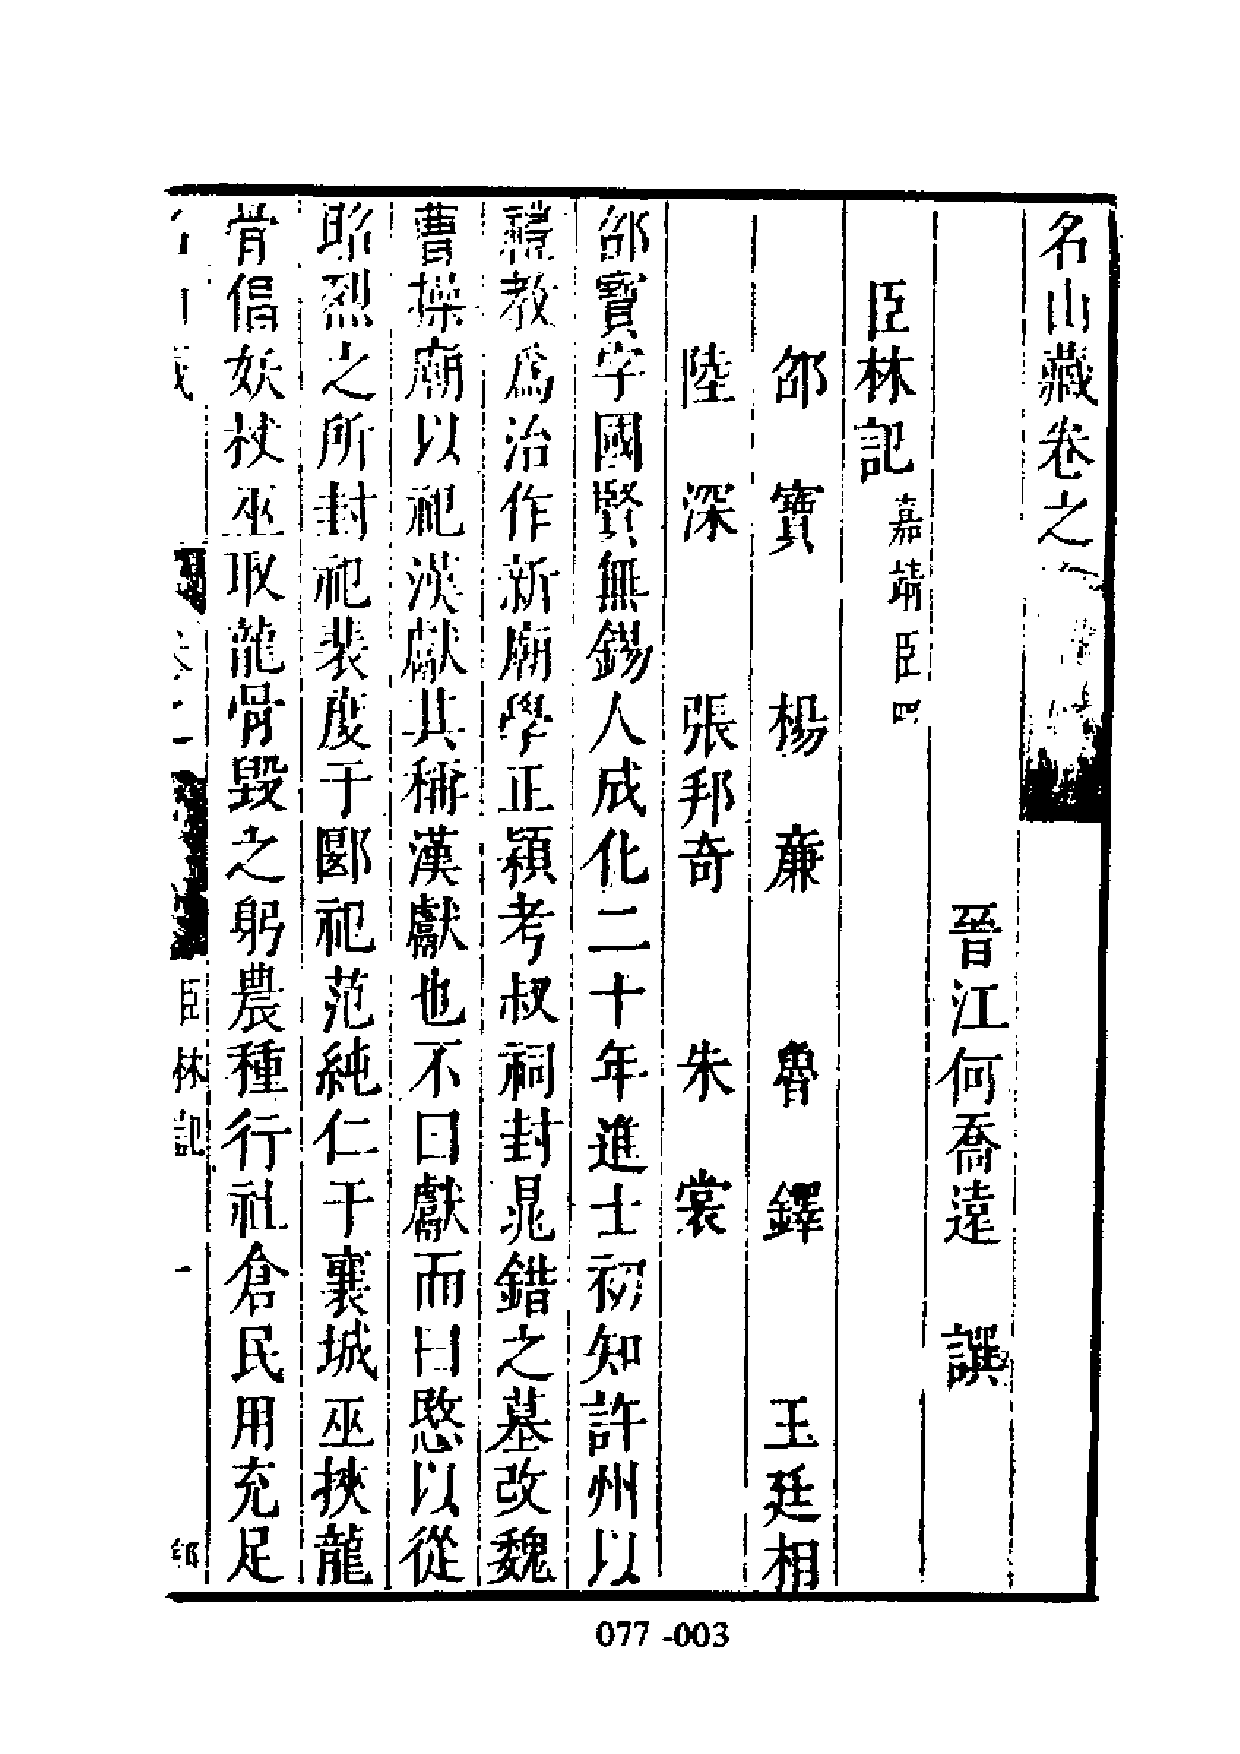 名山藏卷之
晉江何喬遠 譔
臣林記 嘉靖臣四
邵寶 楊廉 魯鐸 王廷相
陸深 張邦奇 朱裳
邵寶字國賢無錫人成化二十年進士初知許州以
禮教爲治作新廟學正潁考叔祠封鼂錯之墓改魏
曹操廟以祀漢獻其稱漢獻也不曰獻而曰愍以從
昭烈之所封祀裴度于郾祀范純仁于襄城巫挾龍
骨倡妖杖巫取龍骨毀之躬農種行社倉民用充足
臣林記 一
077 -003